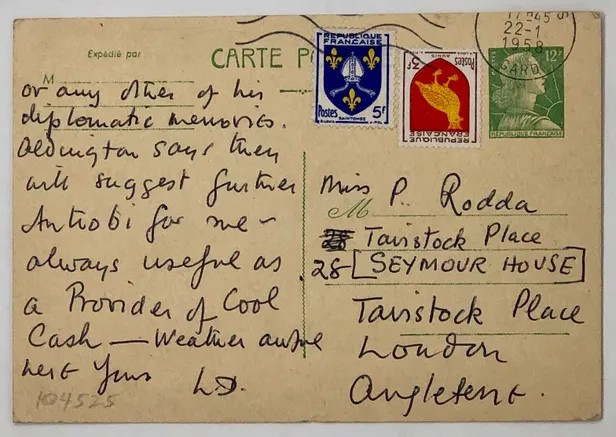 Expédié par
CARTE P
M
or any other of his
diplomatic memories.
Aldington says they
will suggest further
Antrobi for me -
always useful as
a Provider of Cool
Cash — Weather awful
here Yours
LD.
104525
REPUBLIQUE FRANÇAISE
Postes 5F
SAINTONGE
Postes 3F
REPUBLIQUE FRANÇAISE
17H45
22-1
1958
GARD
12F
REPUBLIQUE FRANÇAISE
Miss P. Rodda
M
28 Tavistock Place
28 - [SEYMOUR HOUSE]
Tavistock Place
London
Angleterre.